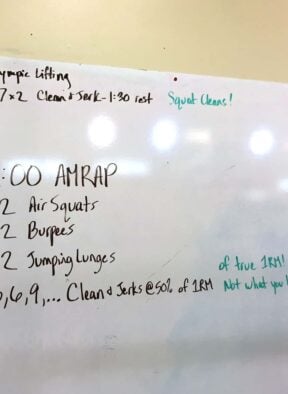 ympic Lifting
7x2 Clean & Jerk - 1:30 rest Squat Cleans!
:00 AMRAP
2 Air Squats
2 Burpees
2 Jumping Lunges
of true 1RM!
,6,9,... Clean & Jerks @ 50% of 1RM Not what you